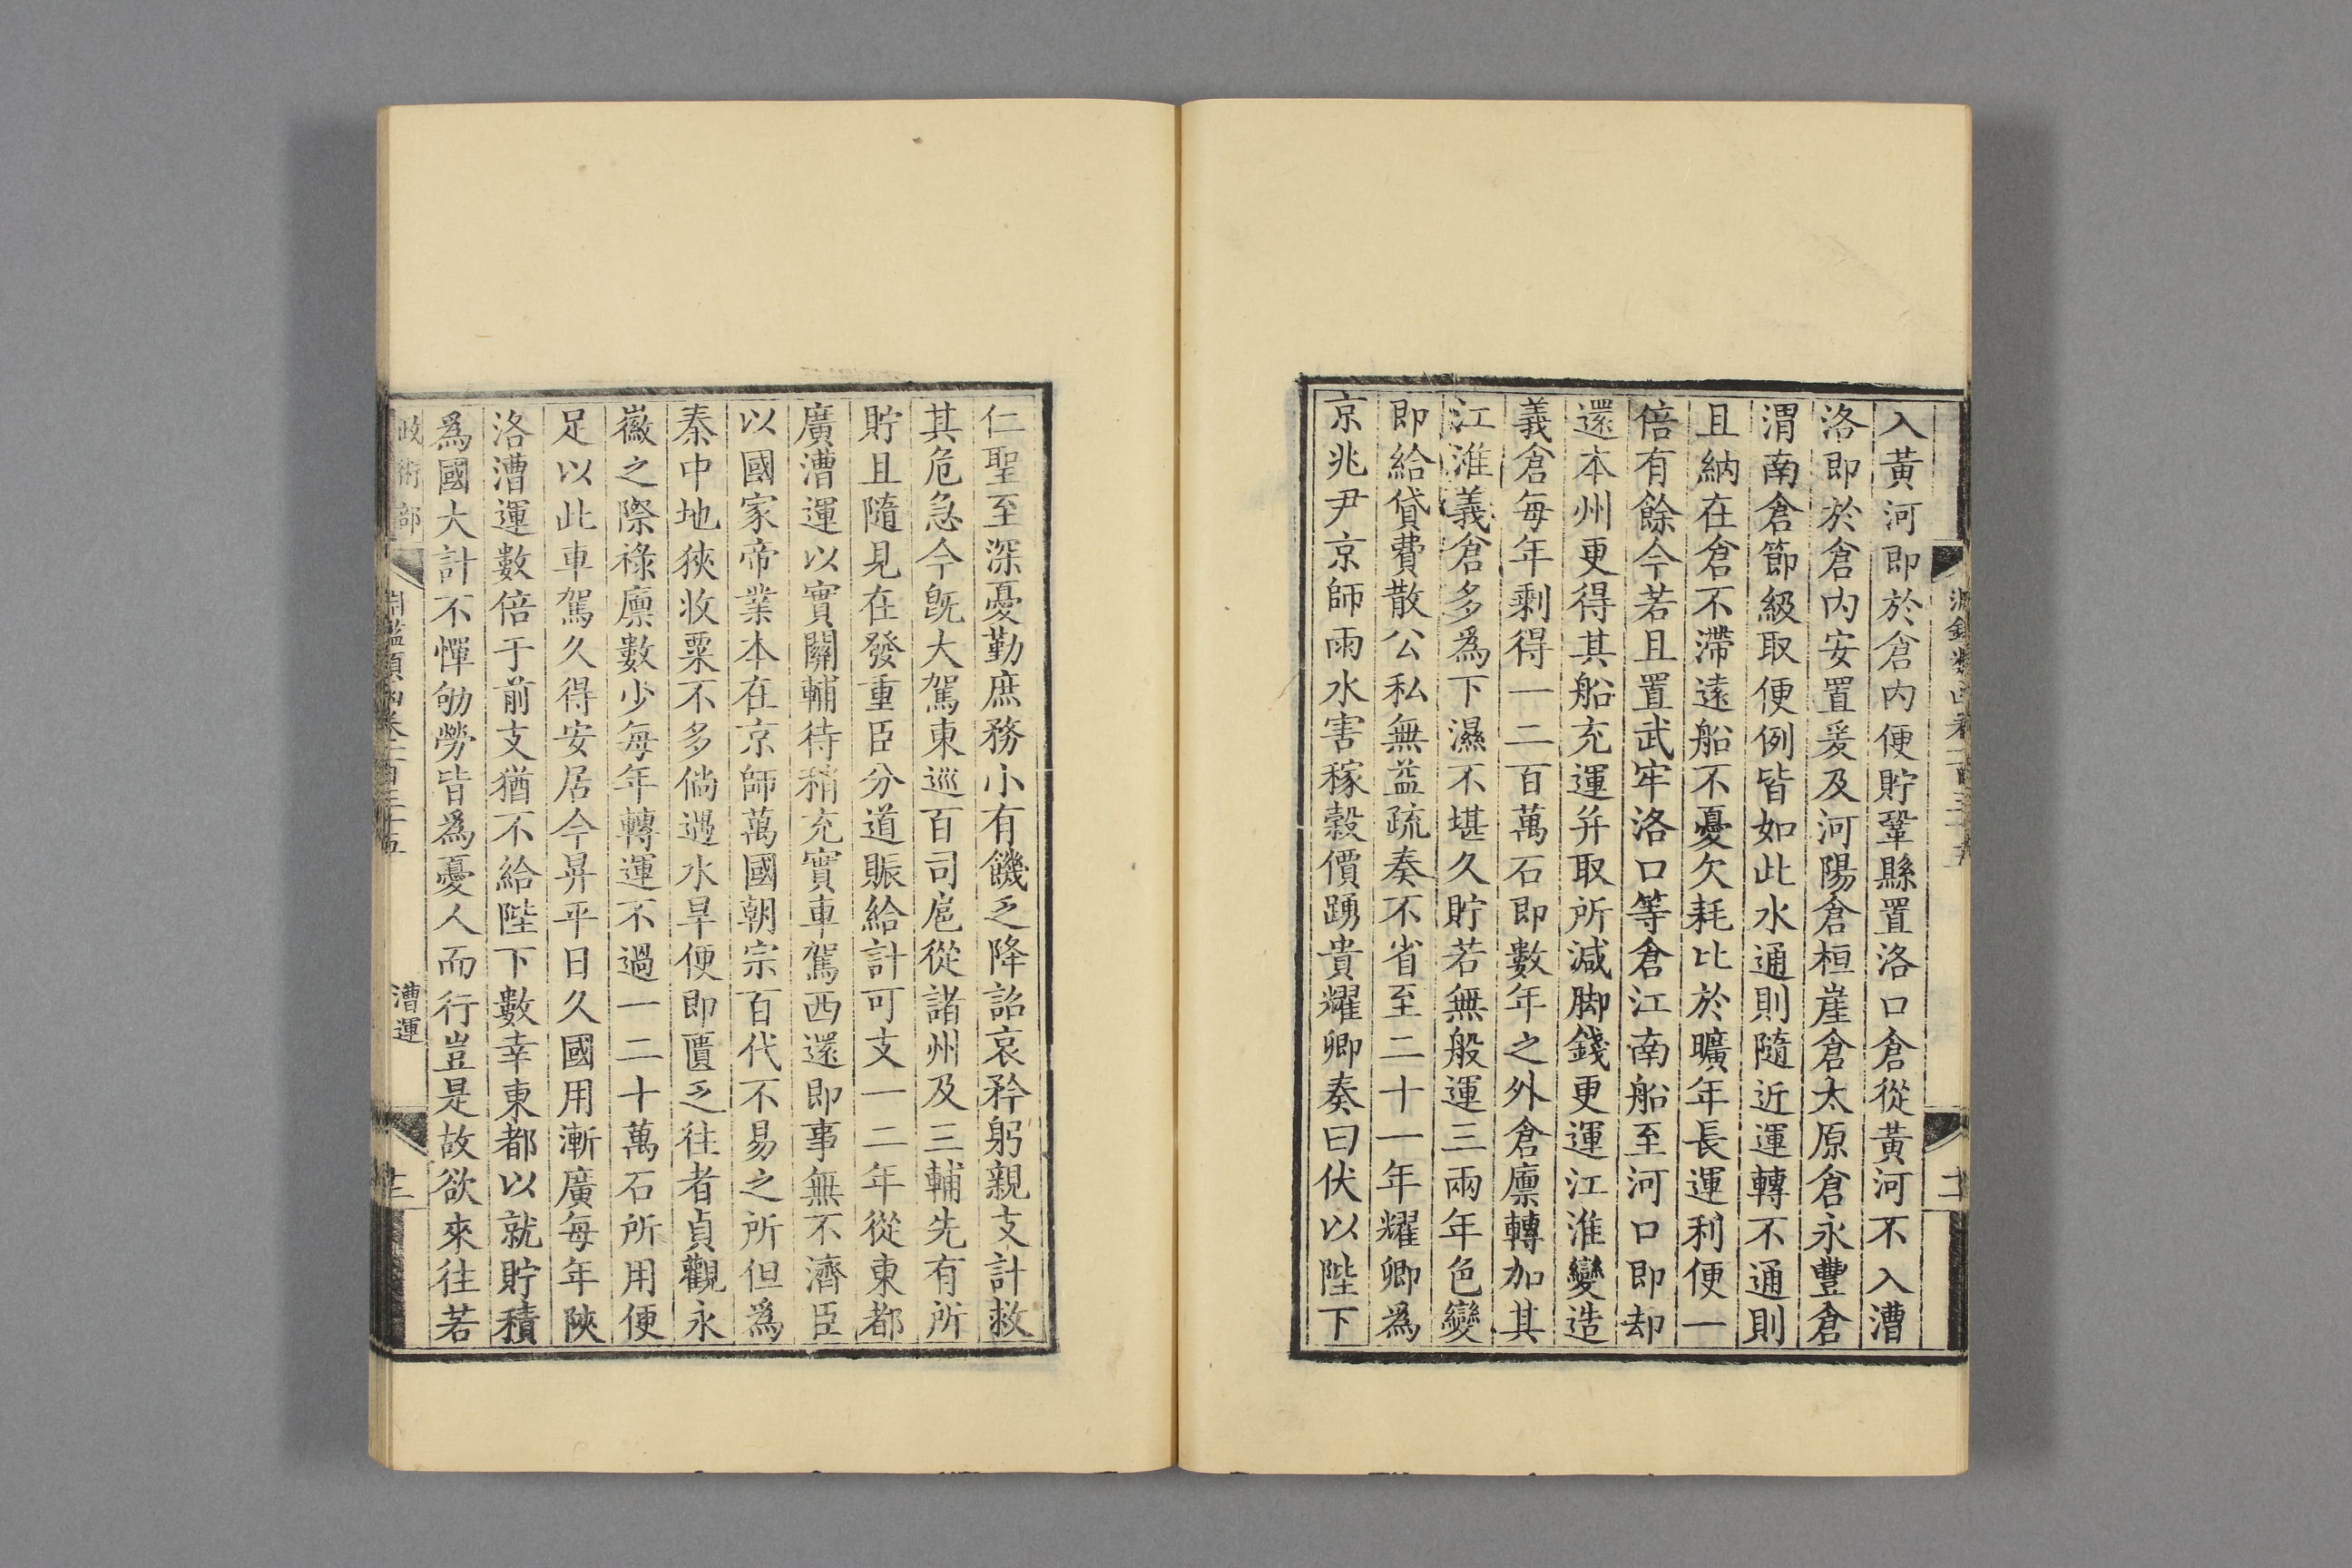 入黃河即於倉内便貯鞏縣置洛口倉從黃河不入漕
洛即於倉内安置爰及河陽倉桓崖倉太原倉永豐倉
渭南倉節級取便例皆如此水通則隨近運轉不通則
且納在倉不滯遠船不憂欠耗比於曠年長運利便一
倍有餘今若且置武牢洛口等倉江南船至河口即却
還本州更得其船充運并取所減脚錢更運江淮變造
義倉每年剩得一二百萬石即數年之外倉廪轉加其
江淮義倉多爲下濕不堪久貯若無般運三兩年色變
即給貸費散公私無益疏奏不省至二十一年耀卿爲
京兆尹京師雨水害稼穀價踴貴耀卿奏曰伏以陛下
仁聖至深憂勤庶務小有饑乏降詔哀矜躬親支計救
其危急今旣大駕東巡百司扈從諸州及三輔先有所
貯且隨見在發重臣分道賑給計可支一二年從東都
廣漕運以實關輔待稍充實車駕西還即事無不濟臣
以國家帝業本在京師萬國朝宗百代不易之所但爲
秦中地狹收粟不多倘遇水旱便即匱乏往者貞觀永
徽之際祿廪數少每年轉運不過一二十萬石所用便
足以此車駕久得安居今昇平日久國用漸廣每年陝
洛漕運數倍于前支猶不給陛下數幸東都以就貯積
爲國大計不憚劬勞皆爲憂人而行豈是故欲來往若
政術部 卷二百三十五 漕運